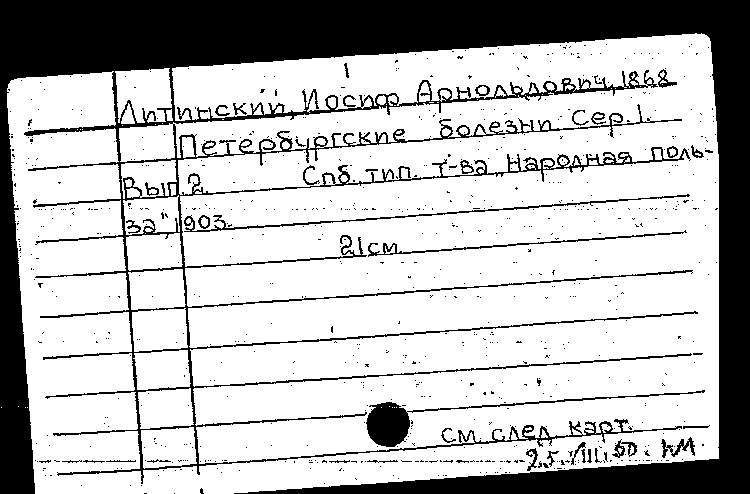 Литинский, Иосиф Арнольдович, 1868
Петербургские болезни Сер. 1.
Вып. 2 Спб. тип. т-ва „Народная поль-
за", 1903.
21 см.
см. след. карт.
25.VIII.50.